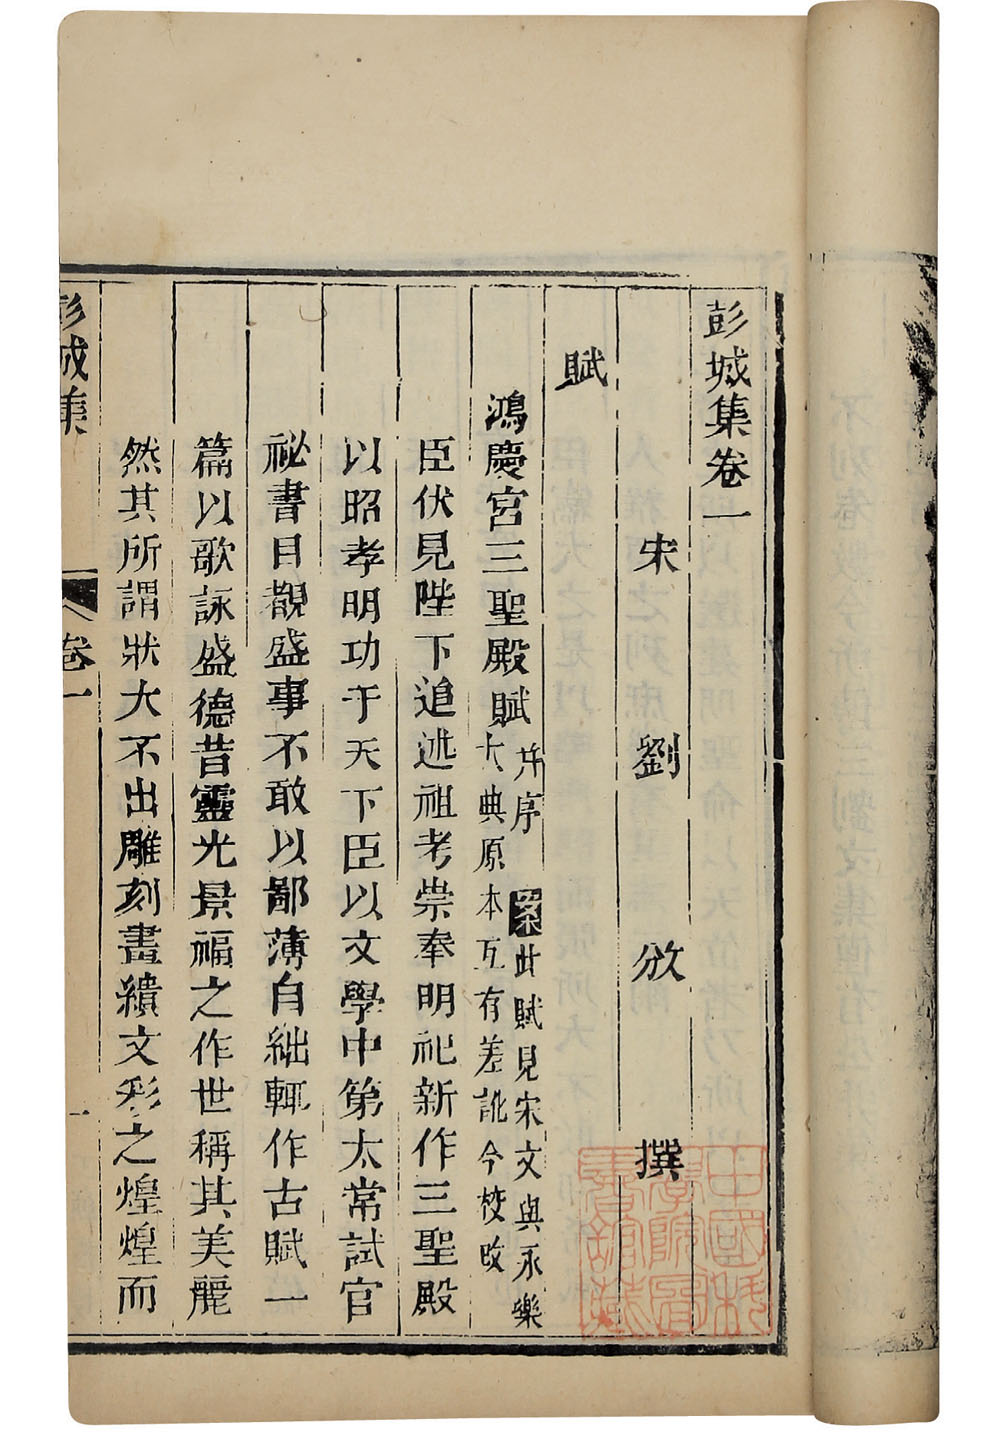 彭城集卷一
宋　劉　攽　撰
賦
鴻慶宮三聖殿賦并序 案此賦見宋文與永樂大典原本互有差訛今校改
臣伏見陛下追述祖考崇奉明祀新作三聖殿
以昭孝明功于天下臣以文學中第太常試官
祕書目覩盛事不敢以鄙薄自絀輒作古賦一
篇以歌詠盛德昔靈光景福之作世稱其美麗
然其所謂狀大不出雕刻畫繢文彩之煌煌而
彭城集　卷一　一
中國科學院圖書館藏